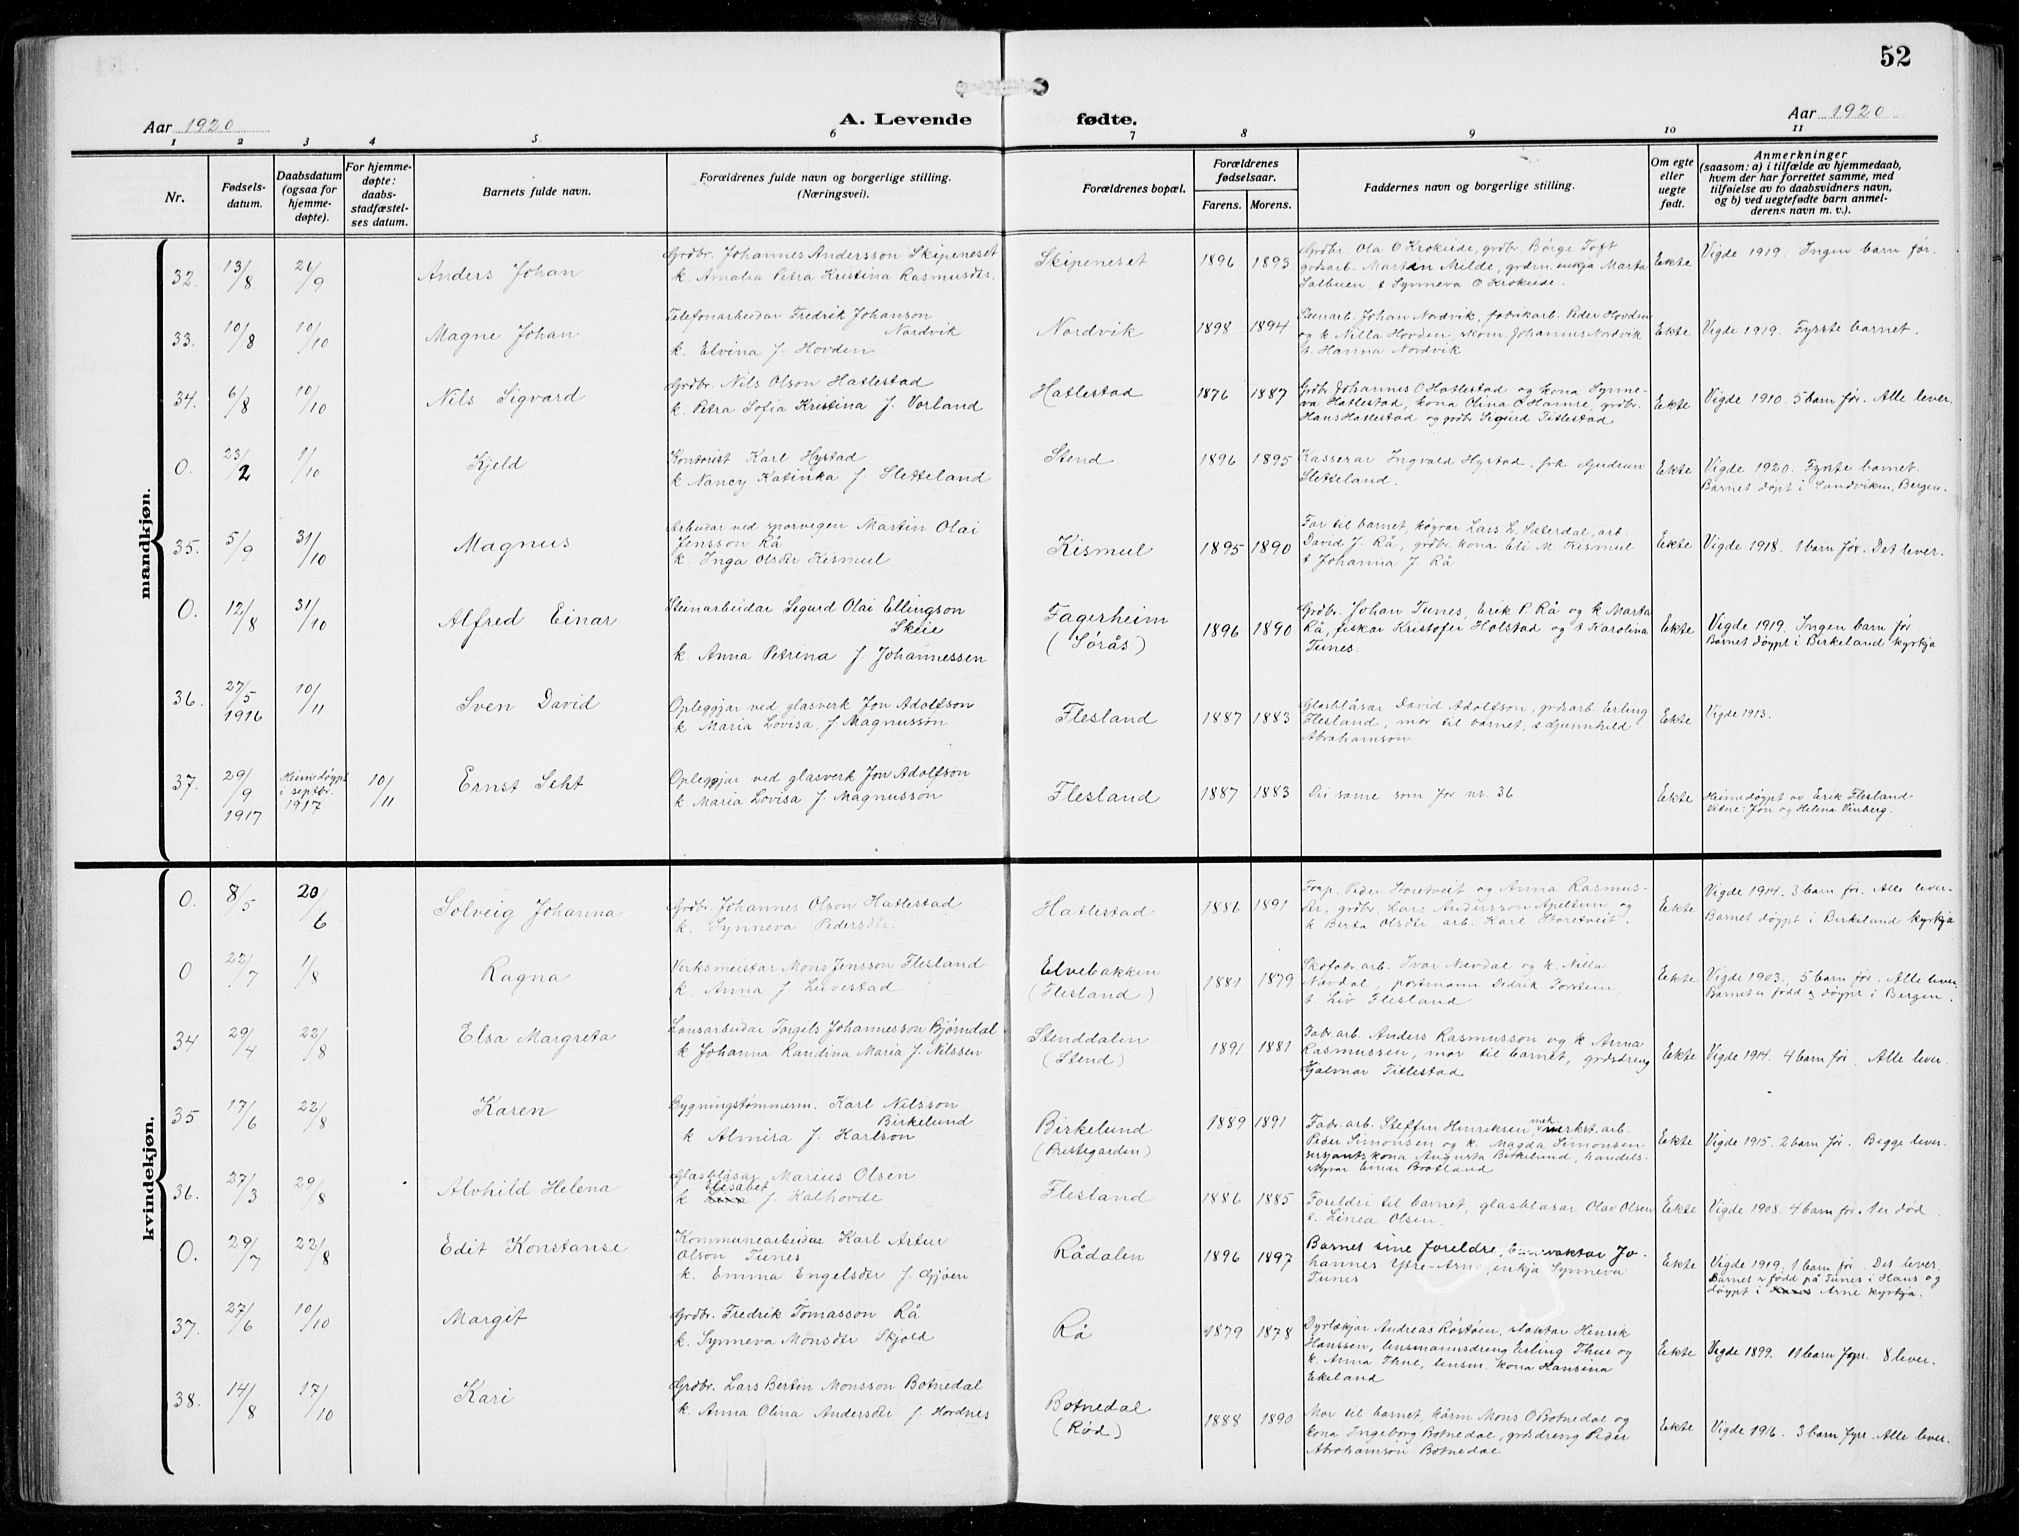 52
Aar 1920
A. Levende fødte.
Aar 1920
1 2 3 4 5 6 7 8 9 10 11
Nr.
Fødsels-
datum.
Daabsdatum
(ogsaa for
hjemme-
døpte).
For hjemme-
døpte:
daabs-
stadfæstel-
ses datum.
Barnets fulde navn.
Forældrenes fulde navn og borgerlige stilling.
(Næringsvei).
Forældrenes bopæl.
Forældrenes
fødselsaar.
Farens. Morens.
Faddernes navn og borgerlige stilling.
Om egte
eller
uegte
født.
Anmerkninger
(saasom: a) i tilfælde av hjemmedaab,
hvem der har forrettet samme, med
tilføielse av to daabsvidners navn,
og b) ved uegtefødte barn anmel-
derens navn m. v.).
mandkjøn.
32. 13/8 26/9 Anders Johan
Grdbr. Johannes Andersson Skipeneset
k. Amalia Petra Kristina Rasmusdtr.
Skipeneset 1896 1893
Grdbr. Ola O Krokeide, grdbr. Børge Toft
grdsarb. Martin Milde, grdm. enkja Marta
Salbuen, t Synneva O Krokeide.
Ekte
Vigde 1919. Ingen barn før.
33. 10/8 10/10 Magne Johan
Telefonarbeidar Fredrik Johanson
Nordvik
k. Elvina J. Hovden
Nordvik 1898 1894
Stenarb. Johan Nordvik, fabrikarb. Peder Hovden
og k Nilla Hovden, skom Johannes Nordvik
t. Hanna Nordvik
Ekte
Vigde 1919. Fyrste barnet.
34. 6/8 10/10 Nils Sigvard
Grdbr. Nils Olson Hatlestad
k. Petra Sofia Kristina J. Vorland
Hatlestad 1876 1887
Grdbr Johannes O Hatlestad og kona Synne-
va Hatlestad, kona Olina O Hamre, grdbr.
Hans Hatlestad og grdbr Sigurd Titlestad
Ekte
Vigde 1910. 5 barn før. Alle lever.
0. 23/2 1/10 Kjeld
Kontorist Karl Hystad
k Nancy Katinka J. Sletteland
Stend 1896 1895
Kasserar Ingvald Hystad, frk Gudrun
Sletteland.
Ekte
Vigde 1920. Fyrste barnet.
Barnet døpt i Sandviken, Bergen.
35. 5/9 31/10 Magnus
Arbeidar ved sporvegen Martin Olai
Jensson Rå
k. Inga Olsdtr Kismul
Kismul 1895 1890
Far til barnet, køyrar Lars L. Sæterdal, arb.
David J. Rå, grdbr. kona Eli M Kismul
t Johanna J Rå
Ekte
Vigde 1918. 1 barn før. Det lever.
0. 12/8 31/10 Alfred Einar
Steinarbeidar Sigurd Olai Ellingson
Skeie
k. Anna Petrina J. Johannessen
Fagerheim
(Sørås)
1896 1890
Grdbr. Johan Tunes, Erik P. Rå og k Marta
Rå, fiskar Kristofer Holstad og t Karolina
Tunes.
Ekte
Vigde 1919. Ingen barn før
Barnet døypt i Birkeland kyrkja
36. 27/5 1916 10/11 Sven David
Opleggjar ved glasverk Jon Adolfson
k Maria Lovisa, J Magnusson
Flesland 1887 1883
Glasblåsar David Adolfson, grdsarb. Erling
Flesland, mor til barnet, t Gunnhild
Abrahamson
Ekte
Vigde 1913.
37. 29/9 1917
Heimedøypt
i septbr.
1917
10/11
Ernst Seht
Opleggjar ved glasverk Jon Adolfson
k Maria Lovisa J. Magnusson
Flesland 1887 1883
Dei same som for nr. 36
Ekte
Heimedøypt av Erik Flesland
Vitne: Jon og Helena Vinberg.
kvindekjøn.
0. 8/5 20/6 Solveig Johanna
Grdbr. Johannes Olson Hatlestad
k. Synneva Pedersdtr.
Hatlestad 1886 1891
Peder Storetveit og Anna Rasmus-
dtr, grdbr. Lars Andersson Apeltun og
k Berta Olsdtr arb. Karl Storetveit.
Ekte
Vigde 1914. 3 barn før. Alle lever.
Barnet døypt i Birkeland kyrkja
0 22/7 1/8 Ragna
Verksmeistar Mons Jensson Flesland
k. Anna J Leivestad
Elvebakken
(Flesland)
1881 1879
Skofabr.arb. Ivar Nævdal og k. Nilla
Nævdal, postmann Didrik Torstein,
t. Liv Flesland
Ekte
Vigde 1903. 5 barn før. Alle lever.
Barnet er fødd og døypt i Bergen.
34 29/4 22/8 Elsa Margreta
Lausarbeidar Torgils Johannesson Bjørndal
k Johanna Randina Maria J. Nilssen
Stenddalen
(Stend)
1891 1881
Fabr.arb. Anders Rasmusson og k Anna
Rasmussen, mor til barnet, grdsdreng
Hjalmar Titlestad
Ekte
Vigde 1914. 4 barn før. Alle lever.
35 17/6 22/8 Karen
Bygningstømmerm. Karl Nilsson
Birkelund
k Almira J. Karlson
Birkelund
(Prestegarden)
1889 1891
Fabr.arb. Steffen Henriksen mek verkst. arb.
Peder Simonsen og k. Magda Simonsen
sersjants kona Augusta Birkelund, handels-
styrar Einar Brotland
Ekte
Vigde 1915. 2 barn før. Begge lever.
36. 27/3 29/8 Alvhild Helena
Glasblåsar Marius Olsen
Elisabet
k J. Kalhovde
Flesland 1886 1885
Foreldri til barnet, glasblåsar Olav Olsen
t. Linea Olsen.
Ekte
Vigde 1908. 4 barn før. 1 er død.
0. 29/7 22/8 Edit Konstanse
Kommunearbeidar Karl Artur
Olson Tunes
k. Emma Engelsdtr J. Gjøen
Rådalen 1896 1897
Barnet sine foreldre, Jo-
hannes Ytre-Arne, enkja Synneva
Tunes
Ekte
Vigde 1919. 1 barn før. Det lever.
Barnet er fødd på Tunes i Haus og
døypt i Arne kyrkja.
37. 27/6 10/10 Margit
Grdbr. Fredrik Tomasson Rå
k. Synneva Monsdtr Skjold
Rå 1879 1878
Dyrlækjar Andreas Røstøen, slaktar Henrik
Hanssen, lensmannsdreng Erling Thue og
k. Anna Thue, lensm. kona Hansina
Ekeland
Ekte
Vigde 1899. 11 barn fyrr. 8 lever.
38. 14/8 17/10 Kari
Grdbr. Lars Berten Monsson Botnedal
k. Anna Olina Andersdtr J. Hordnes
Botnedal
(Rød)
1888 1890
Mor til barnet, kårm Mons O Botnedal og
kona Ingeborg Botnedal, grdsdreng Peder
Abrahamson Botnedal
Ekte
Vigde 1916. 3 barn fyrr. Alle lever.